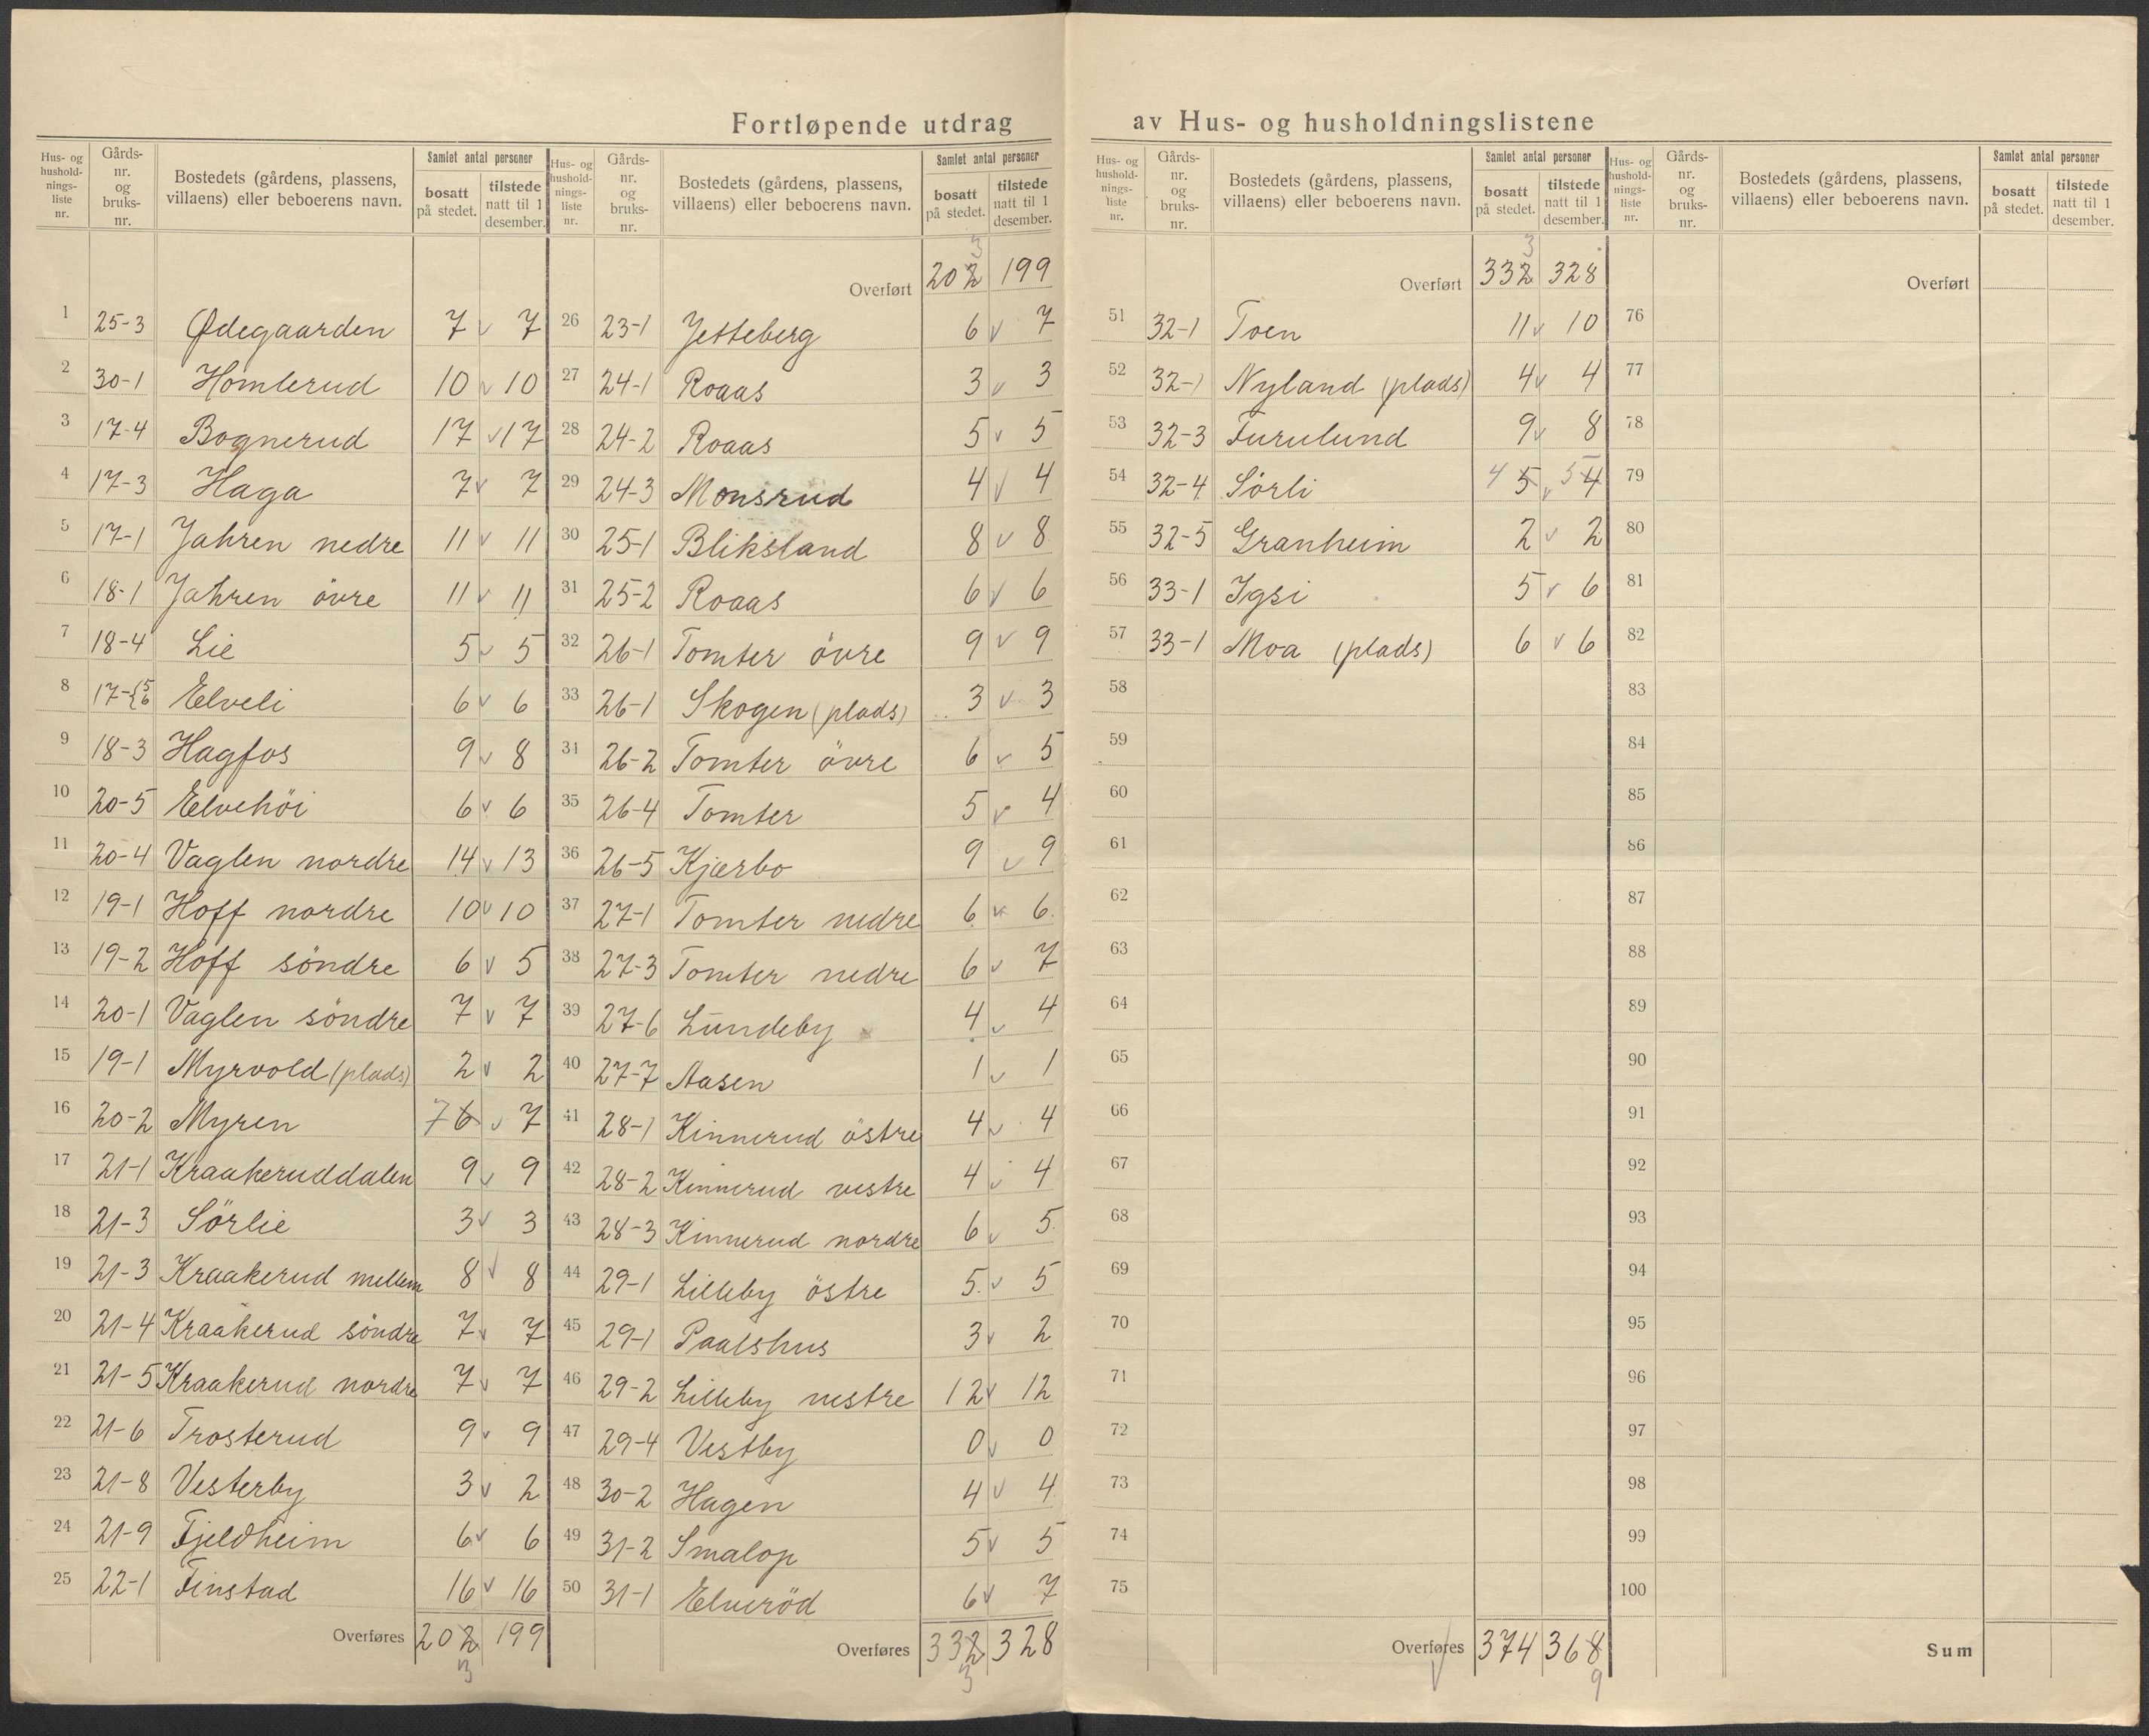 Fortløpende utdrag av Hus- og husholdningslistene
Hus- og hushold-nings-liste nr. | Gårds-nr. og bruks-nr. | Bostedets (gårdens, plassens, villaens) eller beboerens navn. | Samlet antal personer | bosatt på stedet. | tilstede natt til 1 desember.
1 25-3 Ødegaarden 7 v 7
2 30-1 Homlerud 10 v 10
3 17-4 Bognerud 17 v 17
4 17-3 Haga 7 v 7
5 17-1 Jahren nedre 11 v 11
6 18-1 Jahren övre 11 v 11
7 18-4 Lie 5 v 5
8 17-{5 6 Elveli 6 v 6
9 18-3 Hagfos 9 v 8
10 20-5 Elvehöi 6 v 6
11 20-4 Vaglen nordre 14 v 13
12 19-1 Hoff nordre 10 v 10
13 19-2 Hoff söndre 6 v 5
14 20-1 Vaglen söndre 7 v 7
15 19-1 Myrvold (plads) 2 v 2
16 20-2 Myren 7 6 v 7
17 21-1 Kraakeruddalen 9 v 9
18 21-3 Sörlie 3 v 3
19 21-3 Kraakerud mellem 8 v 8
20 21-4 Kraakerud söndre 7 v 7
21 21-5 Kraakerud nordre 7 v 7
22 21-6 Trosterud 9 v 9
23 21-8 Vesterby 3 v 2
24 21-9 Fjeldheim 6 v 6
25 22-1 Finstad 16 v 16
Overføres 202 199
3
Hus- og hushold-nings-liste nr. | Gårds-nr. og bruks-nr. | Bostedets (gårdens, plassens, villaens) eller beboerens navn. | Samlet antal personer | bosatt på stedet. | tilstede natt til 1 desember.
3
Overført 202 199
26 23-1 Jetteberg 6 v 7
27 24-1 Roaas 3 v 3
28 24-2 Roaas 5 v 5
29 24-3 Monsrud 4 v 4
30 25-1 Bliksland 8 v 8
31 25-2 Roaas 6 v 6
32 26-1 Tomter övre 9 v 9
33 26-1 Skogen (plads) 3 v 3
34 26-2 Tomter övre 6 v 5
35 26-4 Tomter 5 v 4
36 26-5 Kjærbo 9 v 9
37 27-1 Tomter nedre 6 v 6
38 27-3 Tomter nedre 6 v 7
39 27-6 Lundeby 4 v 4
40 27-7 Aasen 1 v 1
41 28-1 Kinnerud östre 4 v 4
42 28-2 Kinnerud vestre 4 v 4
43 28-3 Kinnerud nordre 6 v 5
44 29-1 Lilleby östre 5 v 5
45 29-1 Paalshus 3 v 2
46 29-2 Lilleby vestre 12 v 12
47 29-4 Vestby 0 v 0
48 30-2 Hagen 4 v 4
49 31-2 Smalop 5 v 5
50 31-1 Elveröd 6 v 7
Overføres 332 328
3
Hus- og hushold-nings-liste nr. | Gårds-nr. og bruks-nr. | Bostedets (gårdens, plassens, villaens) eller beboerens navn. | Samlet antal personer | bosatt på stedet. | tilstede natt til 1 desember.
3
Overført 332 328
51 32-1 Toen 11 v 10
52 32-1 Nyland (plads) 4 v 4
53 32-3 Furulund 9 v 8
54 32-4 Sörli 4 5 v 5 4
55 32-5 Granheim 2 v 2
56 33-1 Igsi 5 v 6
57 33-1 Moa (plads) 6 v 6
58
59
60
61
62
63
64
65
66
67
68
69
70
71
72
73
74
75
Overføres 374 368
v 9
Hus- og hushold-nings-liste nr. | Gårds-nr. og bruks-nr. | Bostedets (gårdens, plassens, villaens) eller beboerens navn. | Samlet antal personer | bosatt på stedet. | tilstede natt til 1 desember.
Overført
76
77
78
79
80
81
82
83
84
85
86
87
88
89
90
91
92
93
94
95
96
97
98
99
100
Sum